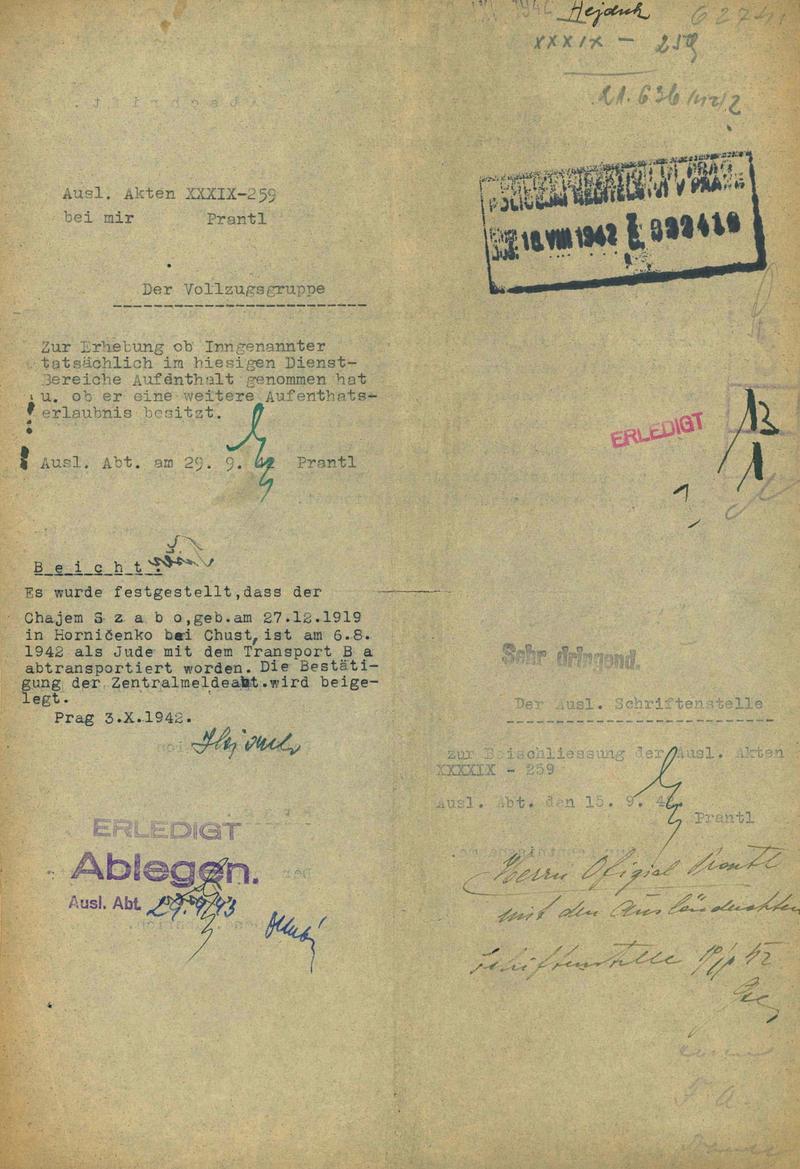 Hejduk
XXXIX - 259
21.636
Ausl. Akten XXXIX-259
bei mir Prantl
Der Vollzugsgruppe
Zur Erhebung ob Inngenannter
tatsächlich im hiesigen Dienst-
Bereiche Aufdnthalt genommen hat
u. ob er eine weitere Aufenthats-
erlaubnis besitzt.
Ausl. Abt. am 29. 9. 42 Prantl
B e i c h t :
Es wurde festgestellt,dass der
Chajem S z a b o,geb.am 27.12.1919
in Horničenko bei Chust,ist am 6.8.
1942 als Jude mit dem Transport B a
abtransportiert worden. Die Bestäti-
gung der Zentralmeldeamt.wird beige-
legt.
Prag 3.X.1942.
ERLEDIGT
Ablegen.
Ausl. Abt.
V PRAZE
18 VIII 1942
ERLEDIGT
13
1
Sehr dringend.
Der Ausl. Schriftenstelle
zur Beischliessung der Ausl. Akten
XXXXIX - 259
Ausl. Abt. den 15. 9. 42
Prantl
Herrn Ofizial Prantl
mit den Ausländerakten
Schriftenstelle